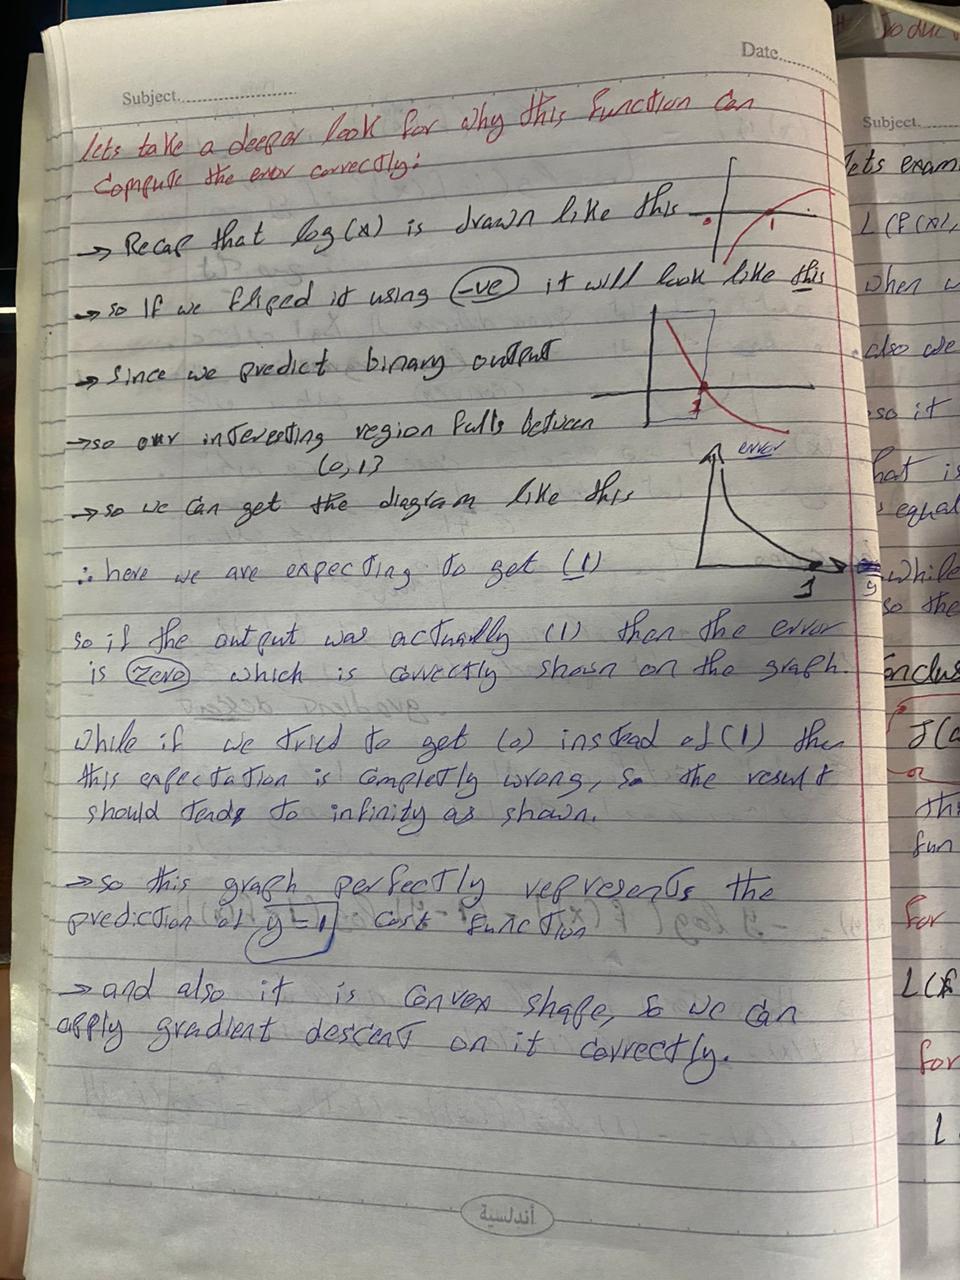 Date
Subject
lets take a deeper look for why this function can
compute the error correctly:
→ Recap that log(x) is drawn like this
1
→ so if we fliped it using (-ve) it will look like this
→ since we predict binary output
1
→ so our interesting region falls between
(0,1)
error
→ so we can get the diagram like this
∴ here we are expecting to get (1)
1
y
so if the output was actually (1) then the error
is zero which is correctly shown on the graph.
while if we tried to get (0) instead of (1) then
this expectation is completly wrong, so the result
should tends to infinity as shown.
→ so this graph perfectly represents the
prediction of y=1 cost function
→ and also it is convex shape, so we can
apply gradient descent on it correctly.
أندلسية
Subject
lets exam
L(F(x),
when
also we
so it
hat is
equal
while
so the
onclus
J(
fun
for
L(f
for
L